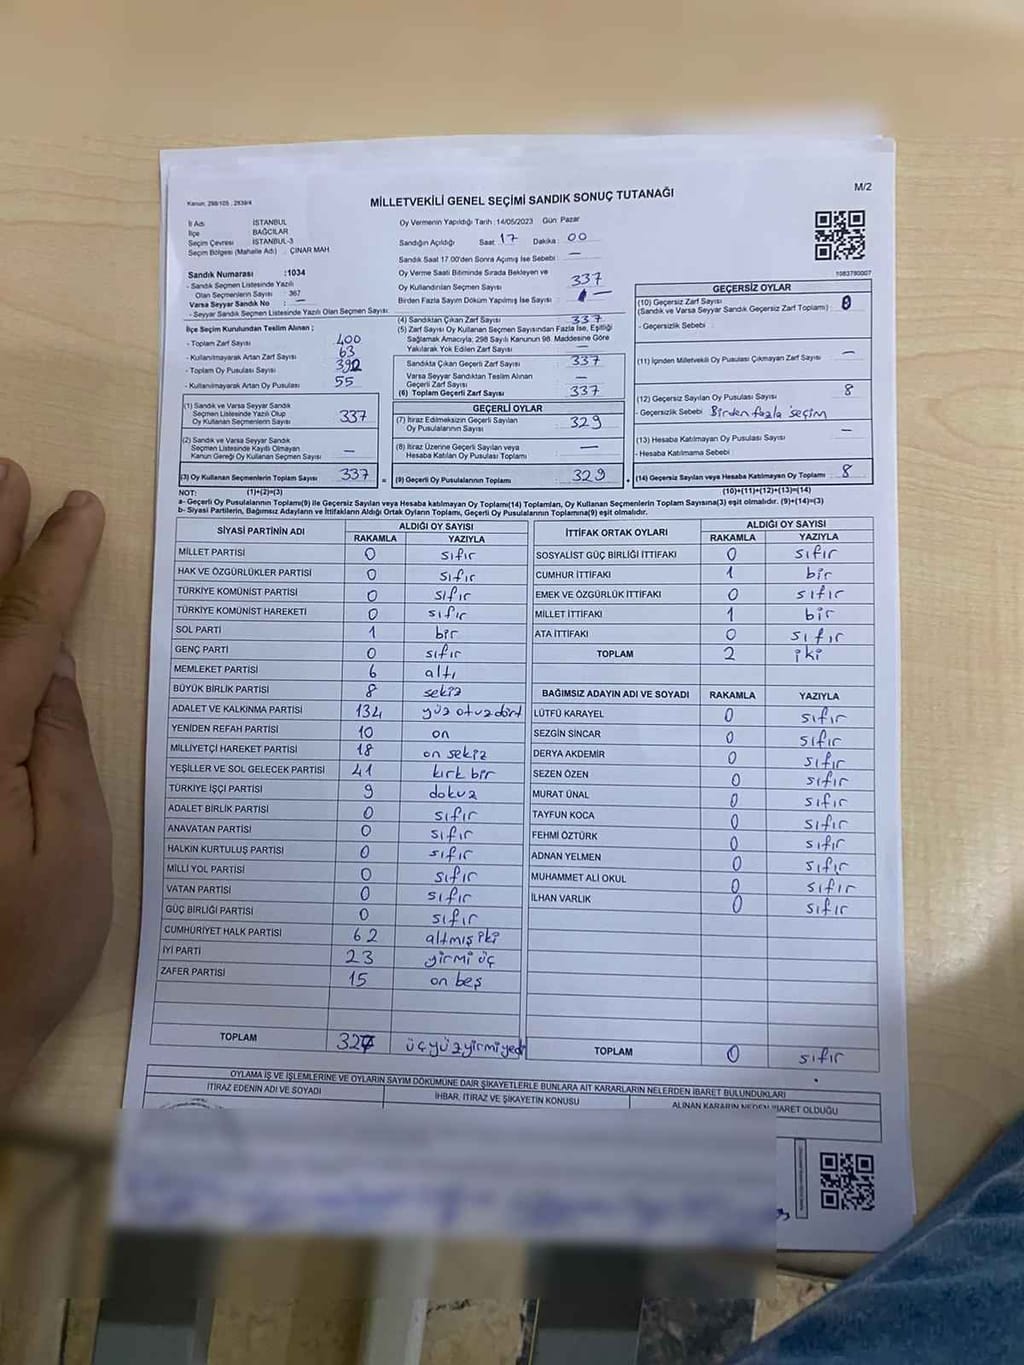 M/2
Kanun: 298/105 , 2839/4
MİLLETVEKİLİ GENEL SEÇİMİ SANDIK SONUÇ TUTANAĞI
İl Adı İSTANBUL
İlçe BAĞCILAR
Seçim Çevresi İSTANBUL-3
Seçim Bölgesi (Mahalle Adı) : ÇINAR MAH
Sandık Numarası :1034
- Sandık Seçmen Listesinde Yazılı
Olan Seçmenlerin Sayısı 367
Varsa Seyyar Sandık No : —
- Seyyar Sandık Seçmen Listesinde Yazılı Olan Seçmen Sayısı:
İlçe Seçim Kurulundan Teslim Alınan ;
- Toplam Zarf Sayısı 400
- Kullanılmayarak Artan Zarf Sayısı 63
- Toplam Oy Pusulası Sayısı 392
- Kullanılmayarak Artan Oy Pusulası 55
(1) Sandık ve Varsa Seyyar Sandık
Seçmen Listesinde Yazılı Olup
Oy Kullanan Seçmenlerin Sayısı 337
(2) Sandık ve Varsa Seyyar Sandık
Seçmen Listesinde Kayıtlı Olmayan
Kanun Gereği Oy Kullanan Seçmen Sayısı —
(3) Oy Kullanan Seçmenlerin Toplam Sayısı 337 =
Oy Vermenin Yapıldığı Tarih : 14/05/2023 Gün: Pazar
Sandığın Açıldığı Saat: 17 Dakika: 00
Sandık Saat 17.00'den Sonra Açımış İse Sebebi: —
Oy Verme Saati Bitiminde Sırada Bekleyen ve
Oy Kullandırılan Seçmen Sayısı 337
Birden Fazla Sayım Döküm Yapılmış İse Sayısı : —
(4) Sandıktan Çıkan Zarf Sayısı 337
(5) Zarf Sayısı Oy Kullanan Seçmen Sayısından Fazla İse, Eşitliği
Sağlamak Amacıyla; 298 Sayılı Kanunun 98. Maddesine Göre
Yakılarak Yok Edilen Zarf Sayısı —
Sandıkta Çıkan Geçerli Zarf Sayısı : 337
Varsa Seyyar Sandıktan Teslim Alınan
Geçerli Zarf Sayısı —
(6) Toplam Geçerli Zarf Sayısı 337
GEÇERLİ OYLAR
(7) İtiraz Edilmeksizin Geçerli Sayılan
Oy Pusulalarının Sayısı 329
(8) İtiraz Üzerine Geçerli Sayılan veya
Hesaba Katılan Oy Pusulası Toplamı —
(9) Geçerli Oy Pusulalarının Toplamı 329 +
1083780007
GEÇERSİZ OYLAR
(10) Geçersiz Zarf Sayısı
(Sandık ve Varsa Seyyar Sandık Geçersiz Zarf Toplamı) : 0
- Geçersizlik Sebebi
(11) İçinden Milletvekili Oy Pusulası Çıkmayan Zarf Sayısı —
(12) Geçersiz Sayılan Oy Pusulası Sayısı 8
- Geçersizlik Sebebi Birden fazla seçim
(13) Hesaba Katılmayan Oy Pusulası Sayısı —
- Hesaba Katılmama Sebebi
(14) Geçersiz Sayılan veya Hesaba Katılmayan Oy Toplamı : 8
NOT: (1)+(2)=(3) (10)+(11)+(12)+(13)=(14)
a- Geçerli Oy Pusulalarının Toplamı(9) ile Geçersiz Sayılan veya Hesaba katılmayan Oy Toplamı(14) Toplamları, Oy Kullanan Seçmenlerin Toplam Sayısına(3) eşit olmalıdır. (9)+(14)=(3)
b- Siyasi Partilerin, Bağımsız Adayların ve İttifakların Aldığı Ortak Oyların Toplamı, Geçerli Oy Pusulalarının Toplamına(9) eşit olmalıdır.
SİYASİ PARTİNİN ADI ALDIĞI OY SAYISI
RAKAMLA YAZIYLA
MİLLET PARTİSİ 0 sıfır
HAK VE ÖZGÜRLÜKLER PARTİSİ 0 sıfır
TÜRKİYE KOMÜNİST PARTİSİ 0 sıfır
TÜRKİYE KOMÜNİST HAREKETİ 0 sıfır
SOL PARTİ 1 bir
GENÇ PARTİ 0 sıfır
MEMLEKET PARTİSİ 6 altı
BÜYÜK BİRLİK PARTİSİ 8 sekiz
ADALET VE KALKINMA PARTİSİ 134 yüz otuz dört
YENİDEN REFAH PARTİSİ 10 on
MİLLİYETÇİ HAREKET PARTİSİ 18 on sekiz
YEŞİLLER VE SOL GELECEK PARTİSİ 41 kırk bir
TÜRKİYE İŞÇİ PARTİSİ 9 dokuz
ADALET BİRLİK PARTİSİ 0 sıfır
ANAVATAN PARTİSİ 0 sıfır
HALKIN KURTULUŞ PARTİSİ 0 sıfır
MİLLİ YOL PARTİSİ 0 sıfır
VATAN PARTİSİ 0 sıfır
GÜÇ BİRLİĞİ PARTİSİ 0 sıfır
CUMHURİYET HALK PARTİSİ 62 altmış iki
İYİ PARTİ 23 yirmi üç
ZAFER PARTİSİ 15 on beş
TOPLAM 327 üçyüzyirmiyedi
İTTİFAK ORTAK OYLARI ALDIĞI OY SAYISI
RAKAMLA YAZIYLA
SOSYALİST GÜÇ BİRLİĞİ İTTİFAKI 0 sıfır
CUMHUR İTTİFAKI 1 bir
EMEK VE ÖZGÜRLÜK İTTİFAKI 0 sıfır
MİLLET İTTİFAKI 1 bir
ATA İTTİFAKI 0 sıfır
TOPLAM 2 iki
BAĞIMSIZ ADAYIN ADI VE SOYADI RAKAMLA YAZIYLA
LÜTFÜ KARAYEL 0 sıfır
SEZGİN SİNCAR 0 sıfır
DERYA AKDEMİR 0 sıfır
SEZEN ÖZEN 0 sıfır
MURAT ÜNAL 0 sıfır
TAYFUN KOCA 0 sıfır
FEHMİ ÖZTÜRK 0 sıfır
ADNAN YELMEN 0 sıfır
MUHAMMET ALİ OKUL 0 sıfır
İLHAN VARLIK 0 sıfır
TOPLAM 0 sıfır
OYLAMA İŞ VE İŞLEMLERİNE VE OYLARIN SAYIM DÖKÜMÜNE DAİR ŞİKAYETLERLE BUNLARA AİT KARARLARIN NELERDEN İBARET BULUNDUKLARI
İTİRAZ EDENİN ADI VE SOYADI İHBAR, İTİRAZ VE ŞİKAYETİN KONUSU ALINAN KARARIN NEDEN İBARET OLDUĞU